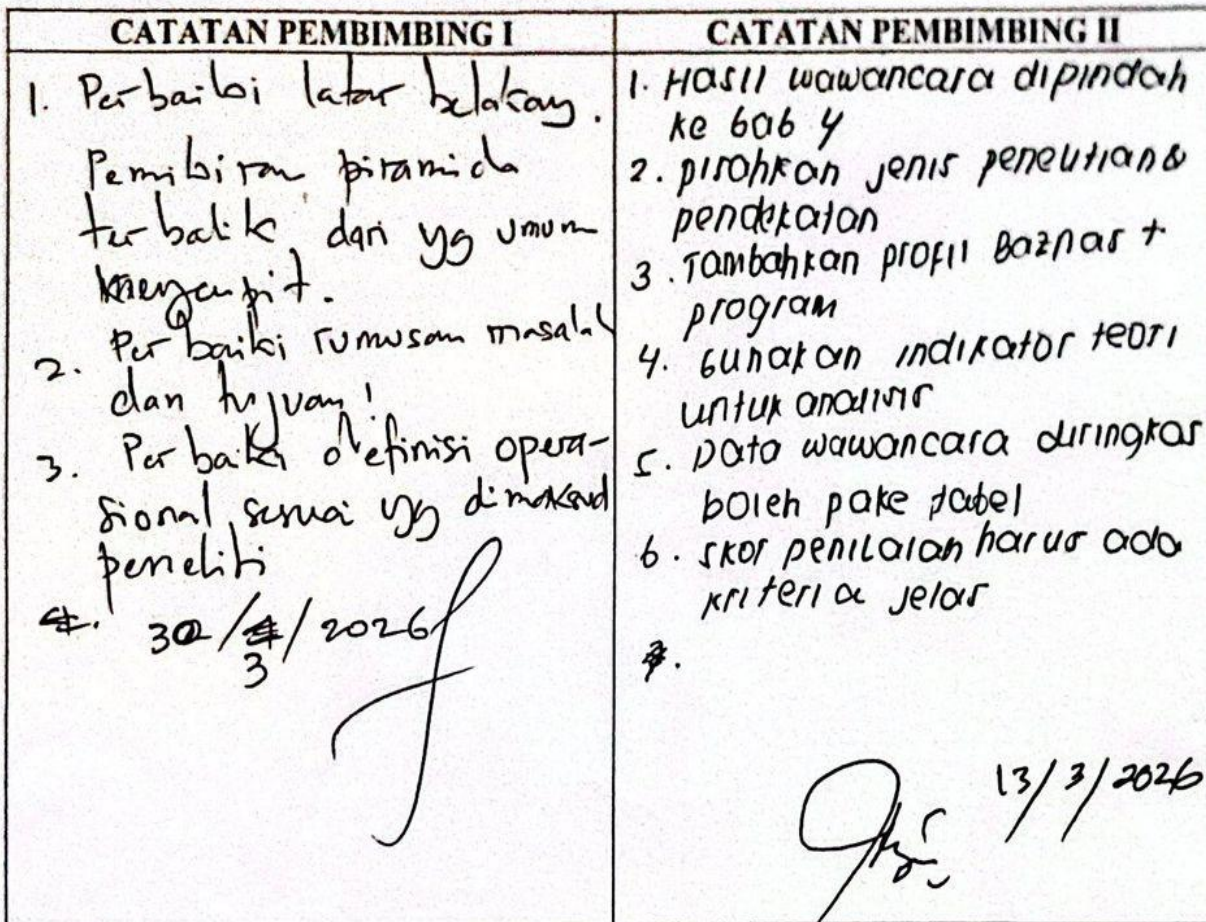 CATATAN PEMBIMBING I
1. Perbaiki latar belakang.
Pemikiran piramida
terbalik, dari yg umum
mengerpit.
2. Perbaiki rumusan masalah
dan tujuan!
3. Perbaiki definisi opera-
sional sesuai yg dimaksud
peneliti
4. 30/3/2026
CATATAN PEMBIMBING II
1. Hasil wawancara dipindah
ke bab 4
2. pisahkan jenis penelitian &
pendekatan
3. Tambahkan profil Baznas +
program
4. Gunakan indikator teori
untuk analisis
5. Data wawancara diringkas
boleh pake tabel
6. skor penilaian harus ada
kriteria jelas
13/3/2026